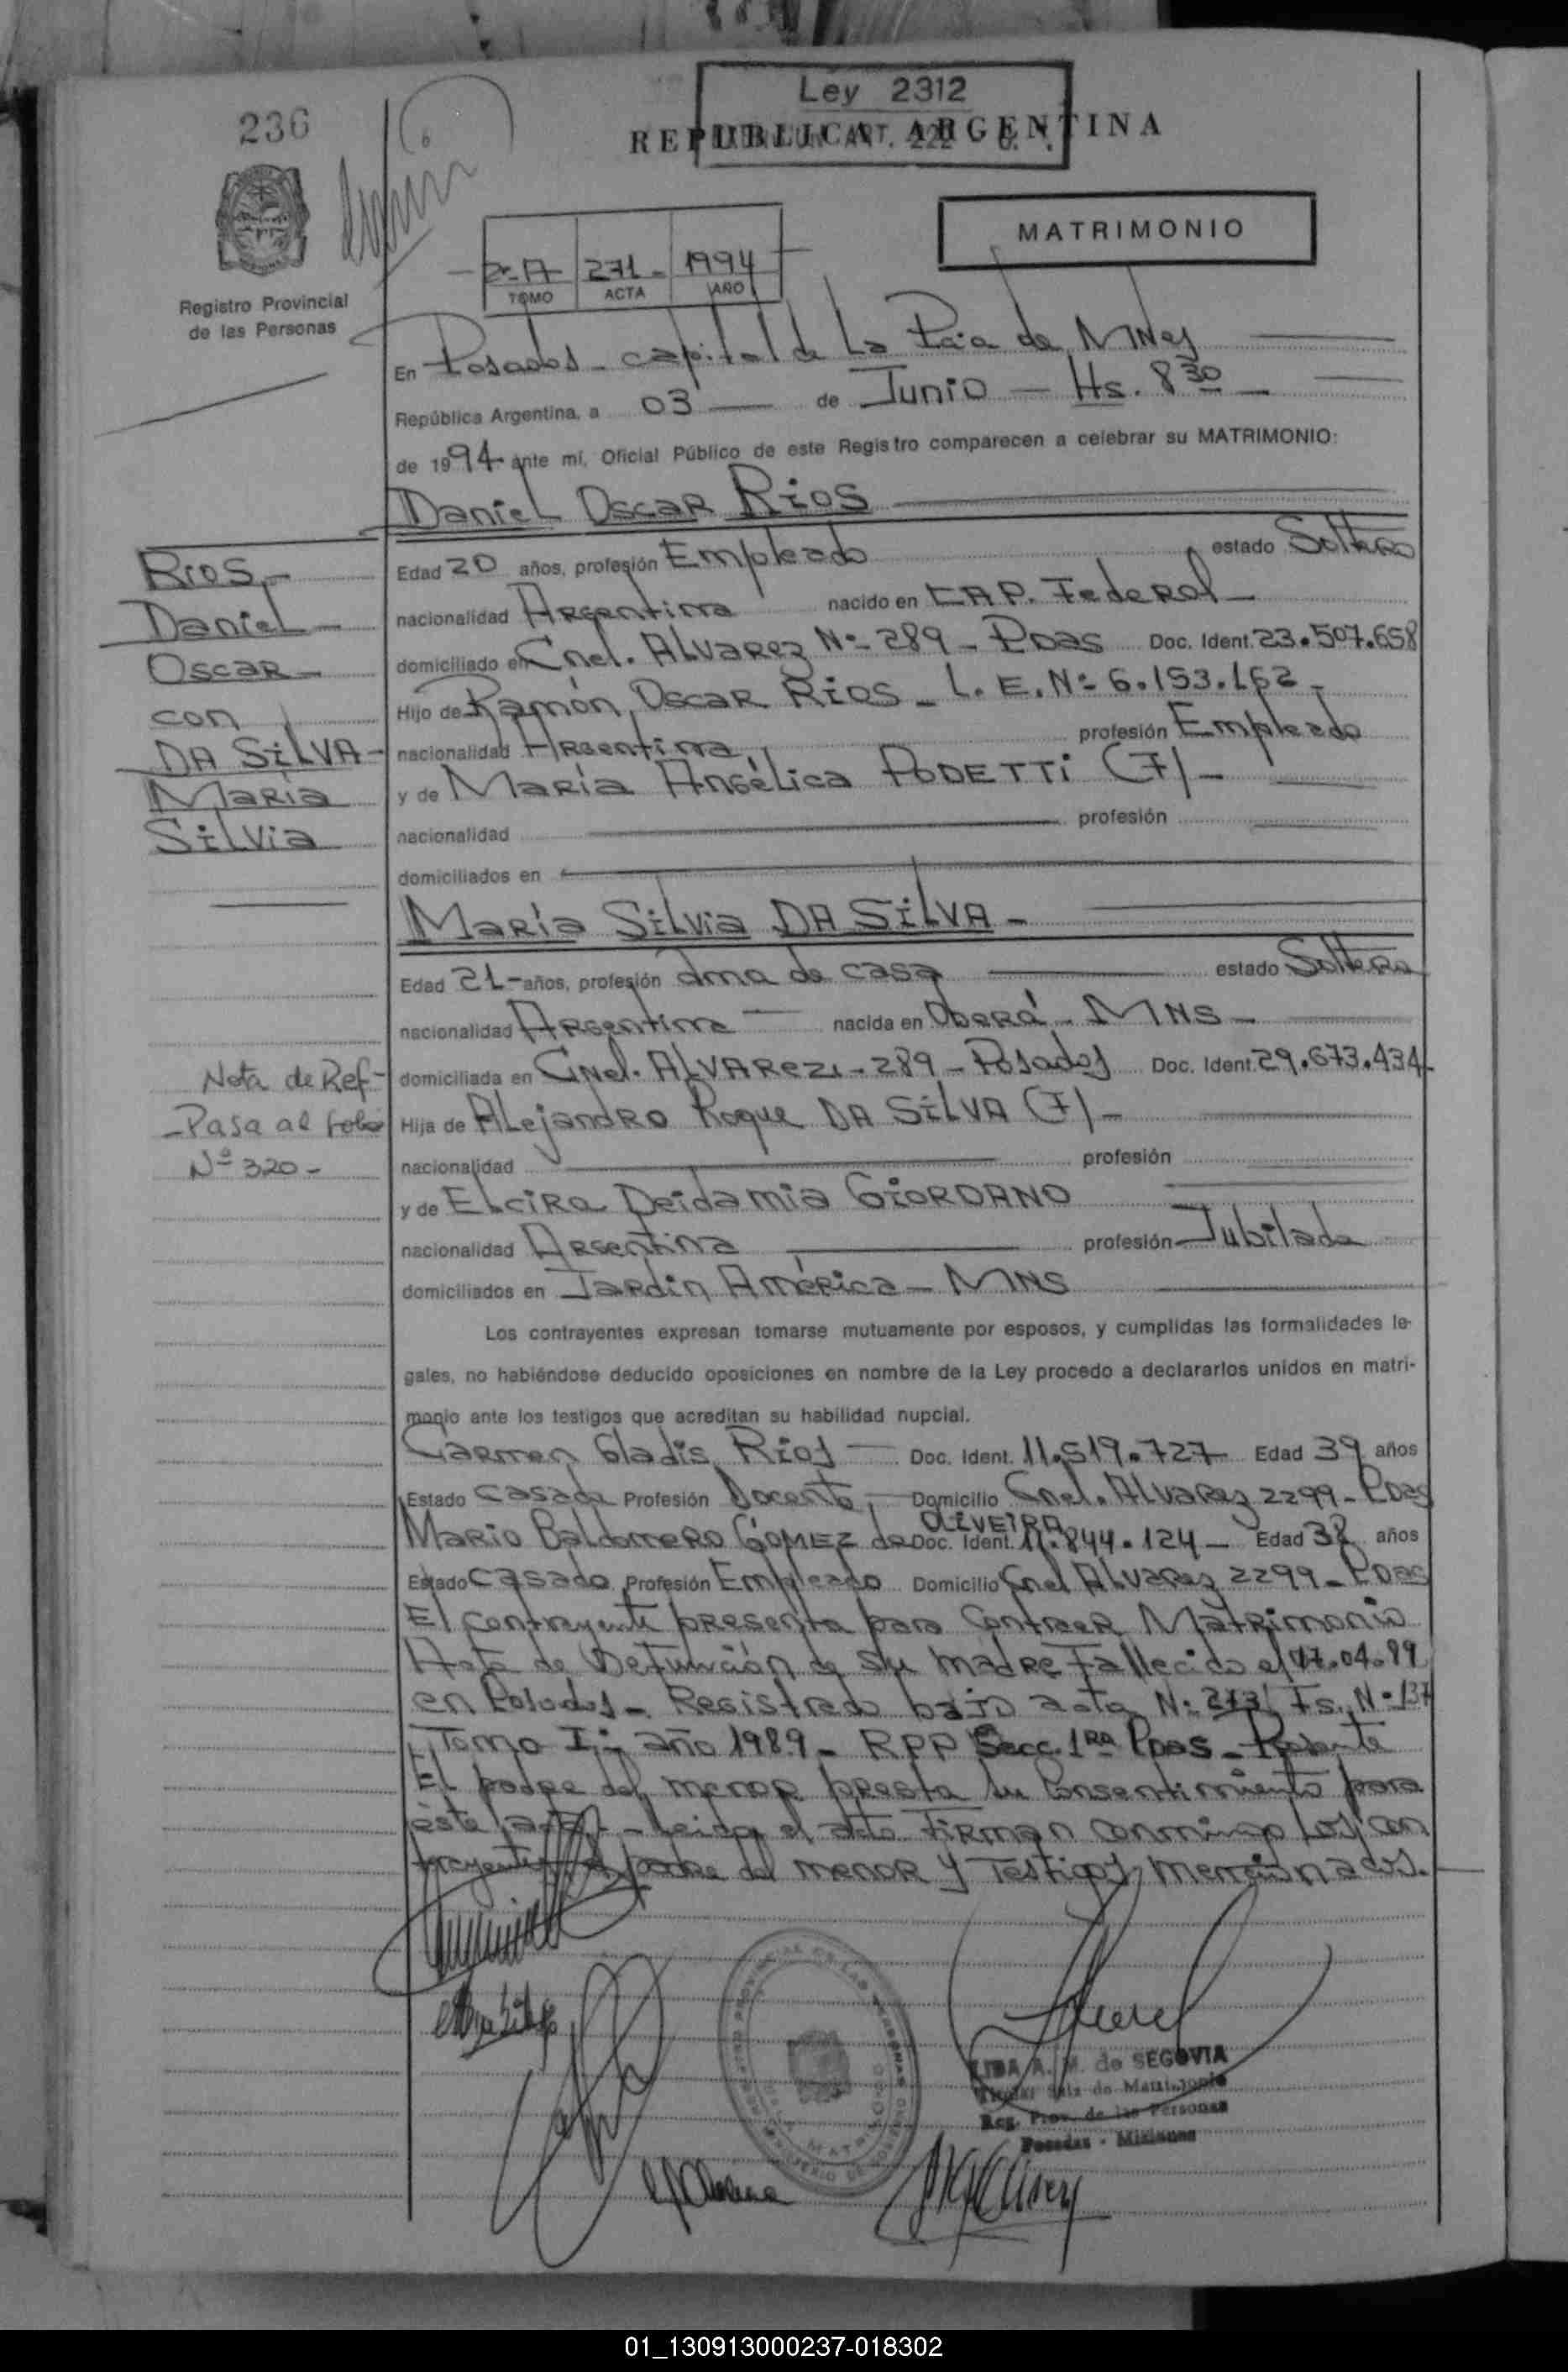 236
Ley 2312
REPUBLICA ARGENTINA
ART. 222
MATRIMONIO
2-A 271- 1994
TOMO ACTA AÑO
Registro Provincial
de las Personas
En Posadas - capital de La Pcia de MNes
República Argentina, a 03 de Junio - Hs. 8 30
de 1994 ante mí, Oficial Público de este Registro comparecen a celebrar su MATRIMONIO:
Daniel Oscar Rios
Rios,-
Daniel-
Oscar-
con
DA SiLVA-
María
SiLVia
Edad 20 años, profesión Empleado estado Soltero
nacionalidad Argentina nacido en CAP. Federal-
domiciliado en Cnel. ALVarez Nº 289 - Pdas Doc. Ident. 23.507.658
Hijo de Ramón Oscar Rios - L.E. Nº 6.153.162-
nacionalidad Argentina profesión Empleado
y de María Angélica PODETTi (F)-
nacionalidad profesión
domiciliados en
María SiLVia DA SiLVA-
Edad 21- años, profesión Ama de casa estado Soltera
nacionalidad Argentina nacida en Oberá - MNS-
domiciliada en Cnel. ALVAREZ - 289 - Posadas Doc. Ident. 29.673.434-
Nota de Ref-
-Pasa al folio
Nº 320-
Hija de ALejandro Roque DA SiLVA (F)-
nacionalidad profesión
y de ELcira Deidamia GiORDANO
nacionalidad Argentina profesión Jubilada
domiciliados en Jardín América - MNS
Los contrayentes expresan tomarse mutuamente por esposos, y cumplidas las formalidades le-
gales, no habiéndose deducido oposiciones en nombre de la Ley procedo a declararlos unidos en matri-
monio ante los testigos que acreditan su habilidad nupcial.
Carmen Gladis Rios Doc. Ident. 11.519.727 Edad 39 años
Estado Casada Profesión Docente, Domicilio Cnel. ALvarez 2299 - Pdas
Mario Baldomero GÓMEZ de OLIVEIRA Doc. Ident. 11.844.124- Edad 38 años
Estado Casado Profesión Empleado Domicilio Cnel ALvarez 2299 - Pdas
El contrayente presenta para Contraer Matrimonio
Acta de Defunción de su madre Fallecida el 17.04.89
en Posadas - Registrada bajo acta Nº 273 Fs. Nº 137
Tomo I; año 1989 - RPP Secc. 1ra Pdas -
El padre del menor presta su Consentimiento para
éste acto - Leida el acta Firman conmigo Los con
trayentes, el padre del menor y Testigos mencionados.
LIDA A. M. de SEGOVIA
Titular Sala de Matrimonio
Reg. Prov. de las Personas
Posadas - Misiones
01_130913000237-018302